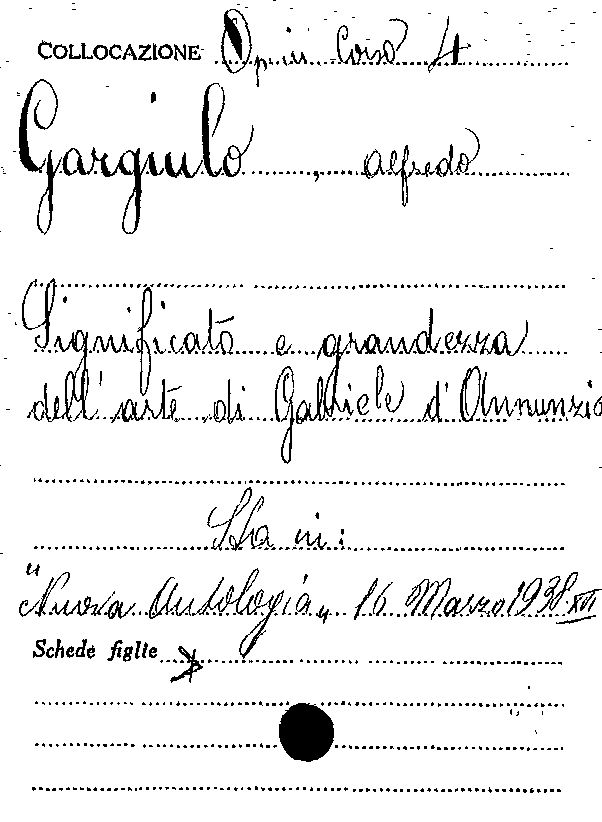 COLLOCAZIONE Opusc Corso 4
Gargiulo, Alfredo
Significato e grandezza
dell'arte di Gabriele d'Annunzio
Sta in:
"Nuova Antologia" 16 Marzo 1938. XVI
Schede figlie